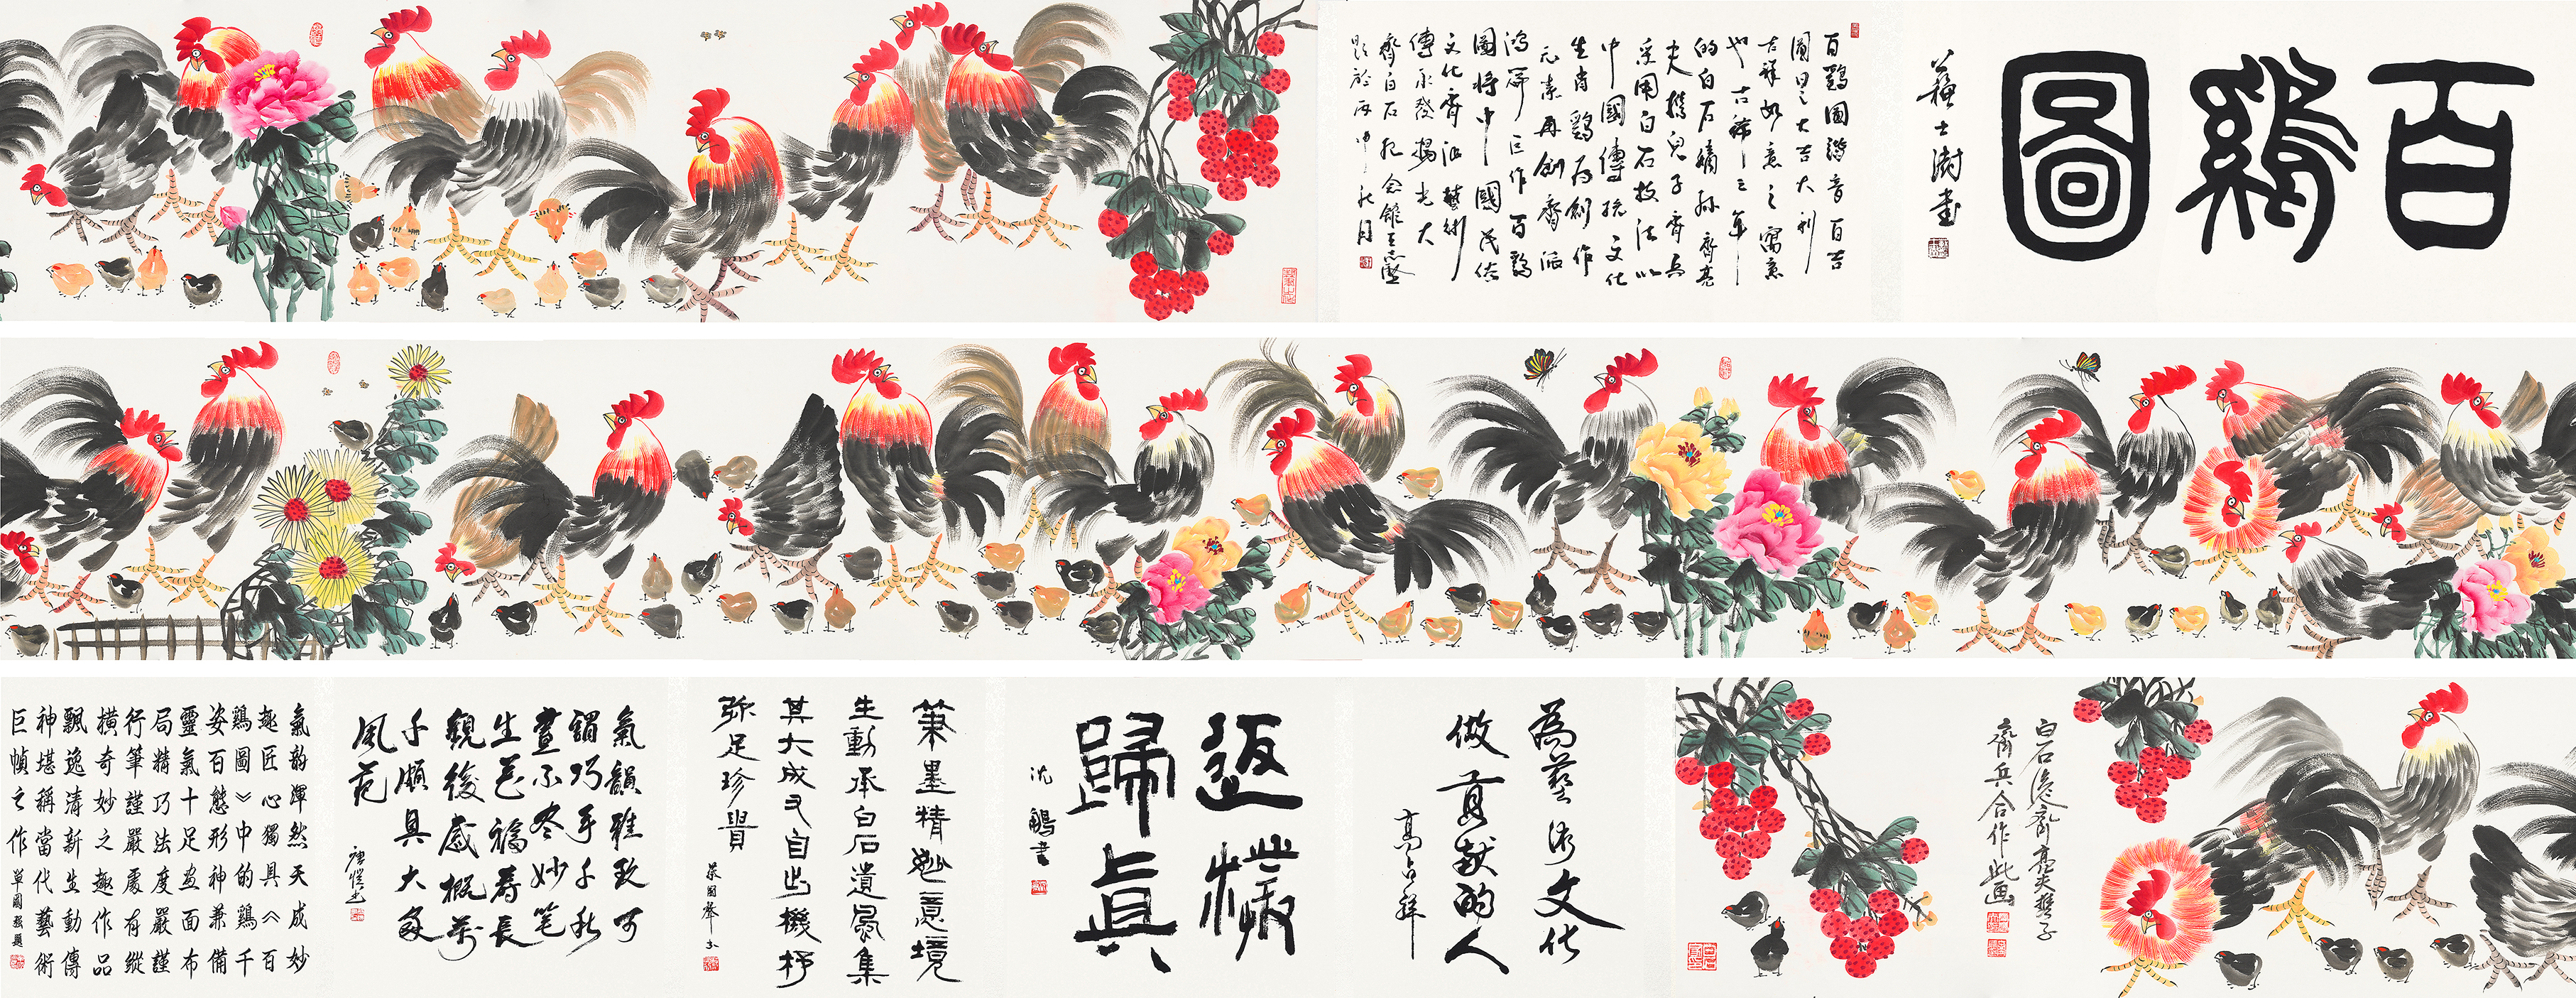 百鷄圖
蘇士澍書
百鷄圖諧音百吉
圖呈大吉大利
吉祥如意之寓意
也古稀之年
的白石嫡孫齊亮
夫携兒子齊兵
采用白石技法以
中國傳統文化
生肖鷄爲創作
元素再創齊派
鴻篇巨作百鷄
圖將中國民俗
文化齊派藝術
傳承發揚光大
齊白石紀念館王志
題於丙申之秋月
白石後裔齊亮夫携子
齊兵合作此画
為藝術文化
做貢獻的人
高占祥
返樸
歸真
沈鵬書
筆墨精妙意境
生動承白石遺風集
其大成又自出機杼
弥足珍貴
氣韻雅致可
謂巧手千秋
畫不冬妙笔
生花福壽長
觀後感概万
千頗具大家
風范
氣韵渾然天成妙
趣匠心獨具《百
鷄圖》中的鷄千
姿百態形神兼備
靈氣十足画面布
局精巧法度嚴謹
行筆謹嚴處有縱
橫奇妙之趣作品
飄逸清新生動傳
神堪稱當代藝術
巨幀之作
單國強題